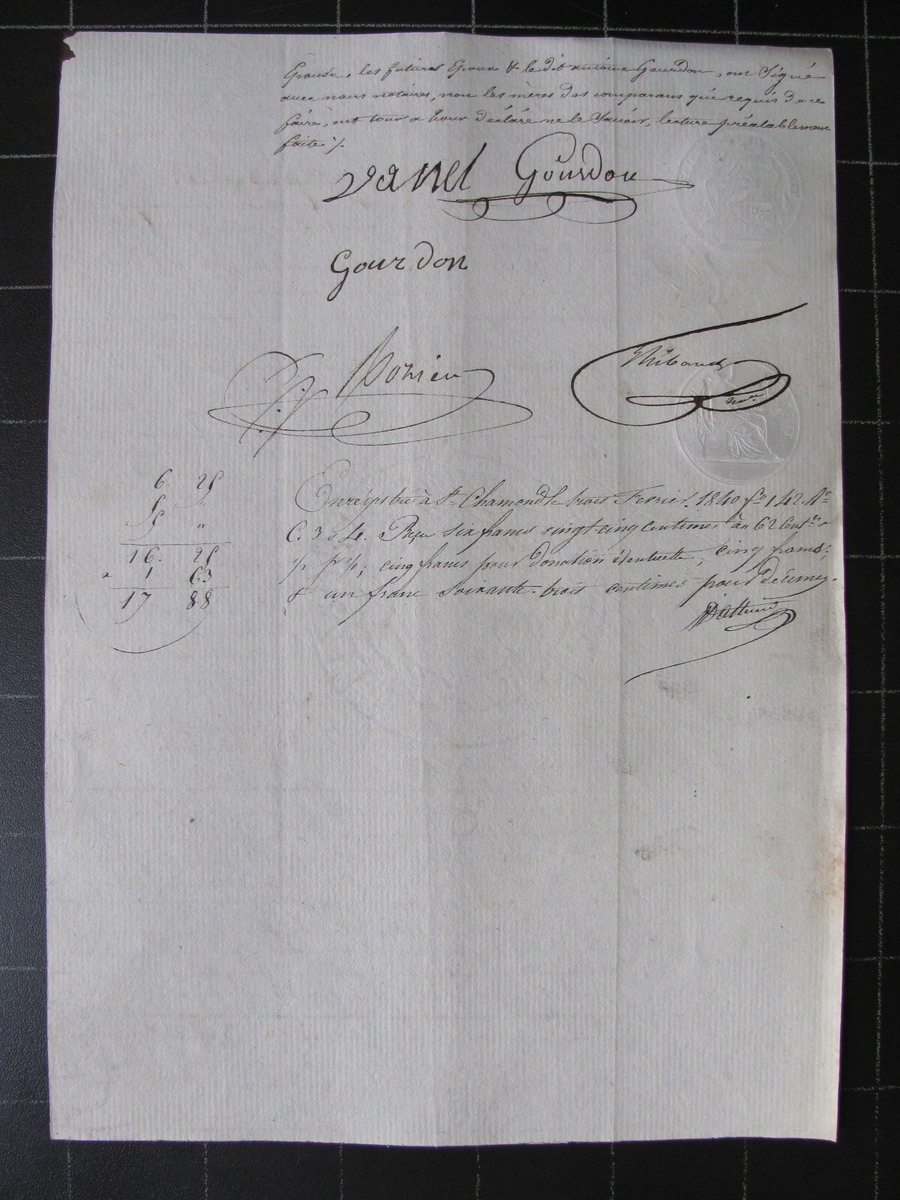 Epouse, les futurs Epoux & le dit antoine Gourdon, ont Signé
avec nous notaires, non les mères des comparans qui requis de ce
faire, ont tour a tour déclaré ne le Savoir, lecture préalablement
faite ;/.
Vanel Gourdon
Gourdon
Thibaud
nre
6. 25
5 "
5 "
16. 25
1 63
17 88
Enregistré à St Chamond le trois Fevrier 1840 fo 142 Ro
C. 3 & 4. Reçu six francs vingt-cinq centimes
cinq francs pour donation éventuelle; cinq francs;
& un franc soixante-trois centimes pour décimes.